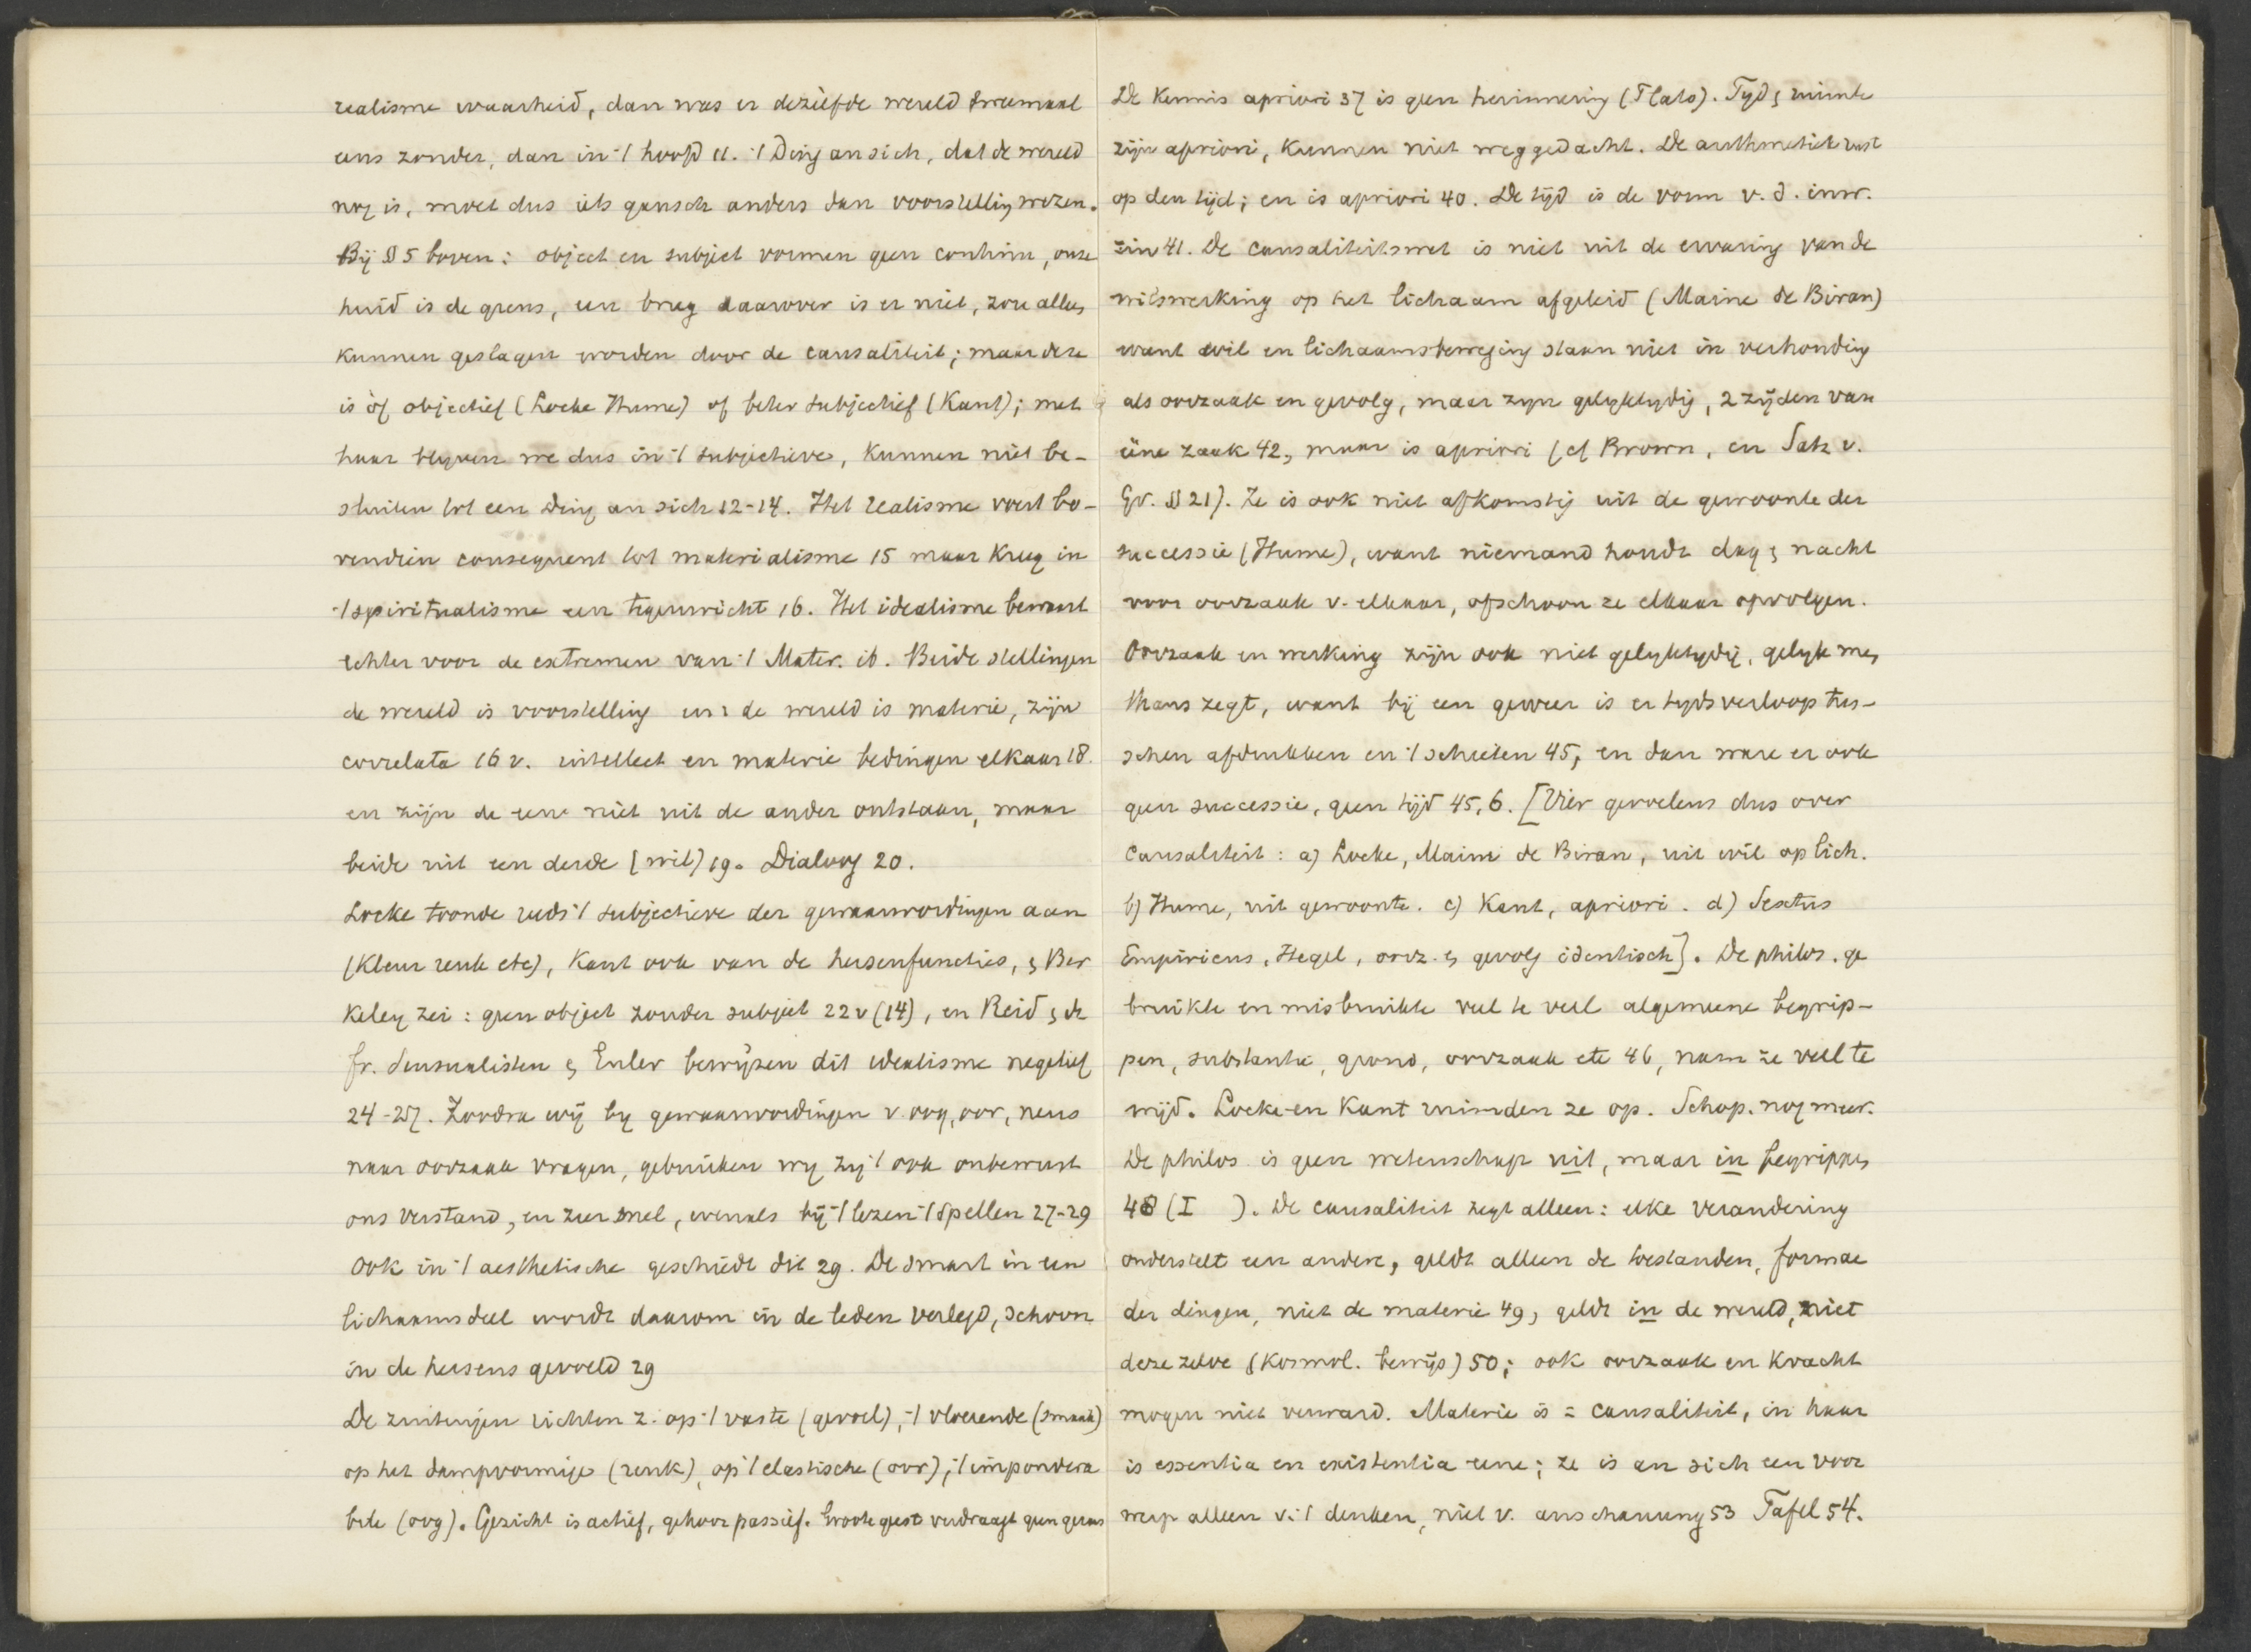 realisme waarheid, dan was er dezelfde wereld tweemaal
eens zonder, dan in 't hoofd 11. 't Ding an sich, dat de wereld
nog is, moet dus iets gansch anders dan voorstelling wezen.
Bij § 5 boven: object en subject vormen geen continu, onze
huid is de grens, een brug daarover is er niet, zou alleen
kunnen geslagen worden door de causaliteit; maar deze
is òf objectief (Locke Hume) of beter subjectief (Kant); met
haar blyven we dus in 't subjectieve, kunnen niet be-
sluiten tot een Ding an sich 12-14. Het realisme voert bo-
vendien consequent tot materialisme 15 maar kreeg in
't spiritualisme een tegenwicht 16. Het idealisme bewaart
echter voor de extremen van 't Mater. ib. Beide stellingen
de wereld is voorstelling en: de wereld is materie, zijn
correlata 16 v. intellect en materie bedingen elkaar 18.
en zijn de een niet uit de ander ontstaan, maar
beide uit een derde (wil) 19. Dialoog 20.
Locke toonde reeds 't subjectieve der gewaarwordingen aan
(kleur reuk etc), Kant ook van de hersenfuncties, & Ber
keley zei: geen object zonder subject 22 v (14), en Reid & de
fr. sensualisten & Euler bewijzen dit idealisme negatief
24-27. Zoodra wij by gewaarwordingen v. oog, oor, neus
naar oorzaak vragen, gebruiken wy zij 't ook onbewust
ons verstand, en zeer snel, evenals bij 't lezen 't spellen 27-29
Ook in 't aesthetische geschiedt dit 29. De smart in een
lichaamsdeel wordt daarom in de leden verlegd, schoon
in de hersens gevoeld 29
De zintuigen richten z. op 't vaste (gevoel), 't vloeiende (smaak)
op het dampvormige (reuk), op 't elastische (oor), 't impondera
bele (oog). Gezicht is actief, gehoor passief. Groote geest verdraagt geen geraas
De kennis apriori 37 is geen herinnering (Plato). Tyd & ruimte
zijn apriori, kunnen niet weggedacht. De arithmetiek rust
op den tijd; en is apriori 40. De tijd is de vorm v. d. inw.
zin 41. De causaliteitswet is niet uit de ervaring van de
wilswerking op het lichaam afgeleid (Maine de Biran)
want wil en lichaamsbeweging staan niet in verhouding
als oorzaak en gevolg, maar zyn gelyktydig, 2 zijden van
ééne zaak 42, maar is apriori (cf Brown, en Satz v.
Gr. § 21). Ze is ook niet afkomstig uit de gewoonte der
successie (Hume), want niemand houdt dag & nacht
voor oorzaak v. elkaar, ofschoon ze elkaar opvolgen.
Oorzaak en werking zijn ook niet gelyktydig, gelyk men
thans zegt, want bij een geweer is er tydsverloop tus-
schen afdrukken en 't schieten 45, en dan ware er ook
geen successie, geen tijd 45, 6. [Vier gevoelens dus over
causaliteit: a) Locke, Maine de Biran, uit wil op lich.
b) Hume, uit gewoonte. c) Kant, apriori. d) Sextus
Empiricus, Hegel, oorz. & gevolg identisch]. De philos. ge
bruikte en misbruikte veel te veel algemeene begrip-
pen, substantie, grond, oorzaak etc 46, nam ze veel te
wijd. Locke en Kant ruimden ze op. Schop. nog meer.
De philos is geen wetenschap uit, maar in begrippen
48 (I ). De causaliteit zegt alleen: elke verandering
onderstelt een andere, geldt alleen de toestanden, formae
der dingen, niet de materie 49, geldt in de wereld, niet
deze zelve (kosmol. bewijs) 50; ook oorzaak en kracht
mogen niet verward. Materie is = causaliteit, in haar
is essentia en existentia eene; ze is an sich een voor
werp alleen v. 't denken, niet v. anschauung 53 Tafel 54.